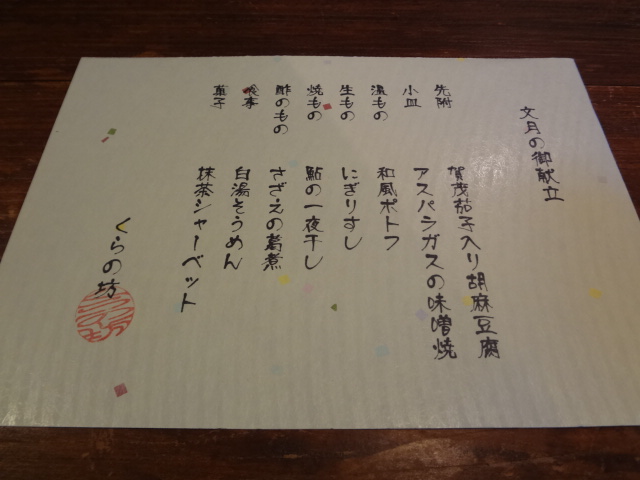 文月の御献立
先附 賀茂茄子入り胡麻豆腐
小皿 アスパラガスの味噌焼
温もの 和風ポトフ
生もの にぎりすし
焼もの 鮎の一夜干し
酢のもの さざえの葛煮
食事 白湯そうめん
菓子 抹茶シャーベット
くらの坊